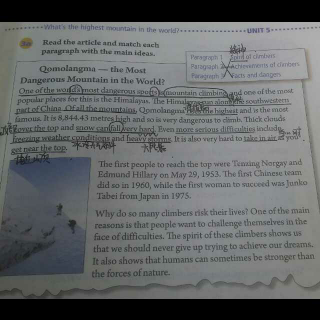 What's the highest mountain in the world?
UNIT 5
3a Read the article and match each
paragraph with the main ideas.
Paragraph 1 Spirit of climbers
Paragraph 2 Achievements of climbers
Paragraph 3 Facts and dangers
Qomolangma — the Most
Dangerous Mountain in the World?
One of the world's most dangerous sports is mountain climbing, and one of the most
popular places for this is the Himalayas. The Himalayas run along the southwestern
part of China. Of all the mountains, Qomolangma rises the highest and is the most
famous. It is 8,844.43 metres high and so is very dangerous to climb. Thick clouds
cover the top and snow can fall very hard. Even more serious difficulties include
freezing weather conditions and heavy storms. It is also very hard to take in air as you
get near the top.
The first people to reach the top were Tenzing Norgay and
Edmund Hillary on May 29, 1953. The first Chinese team
did so in 1960, while the first woman to succeed was Junko
Tabei from Japan in 1975.
Why do so many climbers risk their lives? One of the main
reasons is that people want to challenge themselves in the
face of difficulties. The spirit of these climbers shows us
that we should never give up trying to achieve our dreams.
It also shows that humans can sometimes be stronger than
the forces of nature.